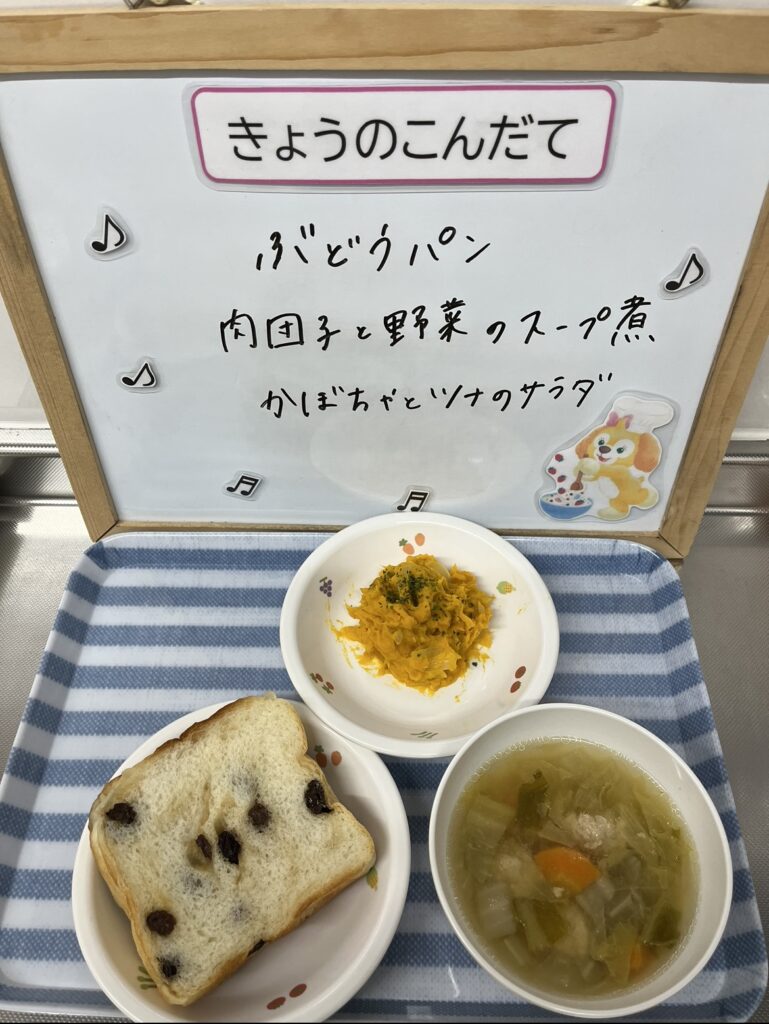 きょうのこんだて
ぶどうパン
肉団子と野菜のスープ煮
かぼちゃとツナのサラダ